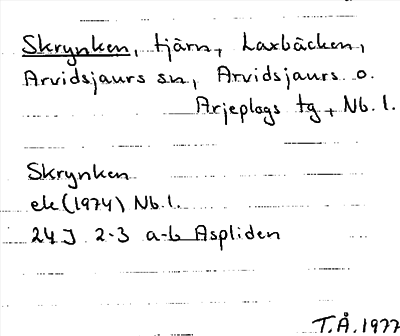 Skrynken, tjärn, Laxbäcken,
Arvidsjaurs sn, Arvidsjaurs o.
Arjeplogs tg, Nb. l.
Skrynken
ek (1974) Nb. l.
24 J 2-3 a-b Aspliden
T.Å. 1977